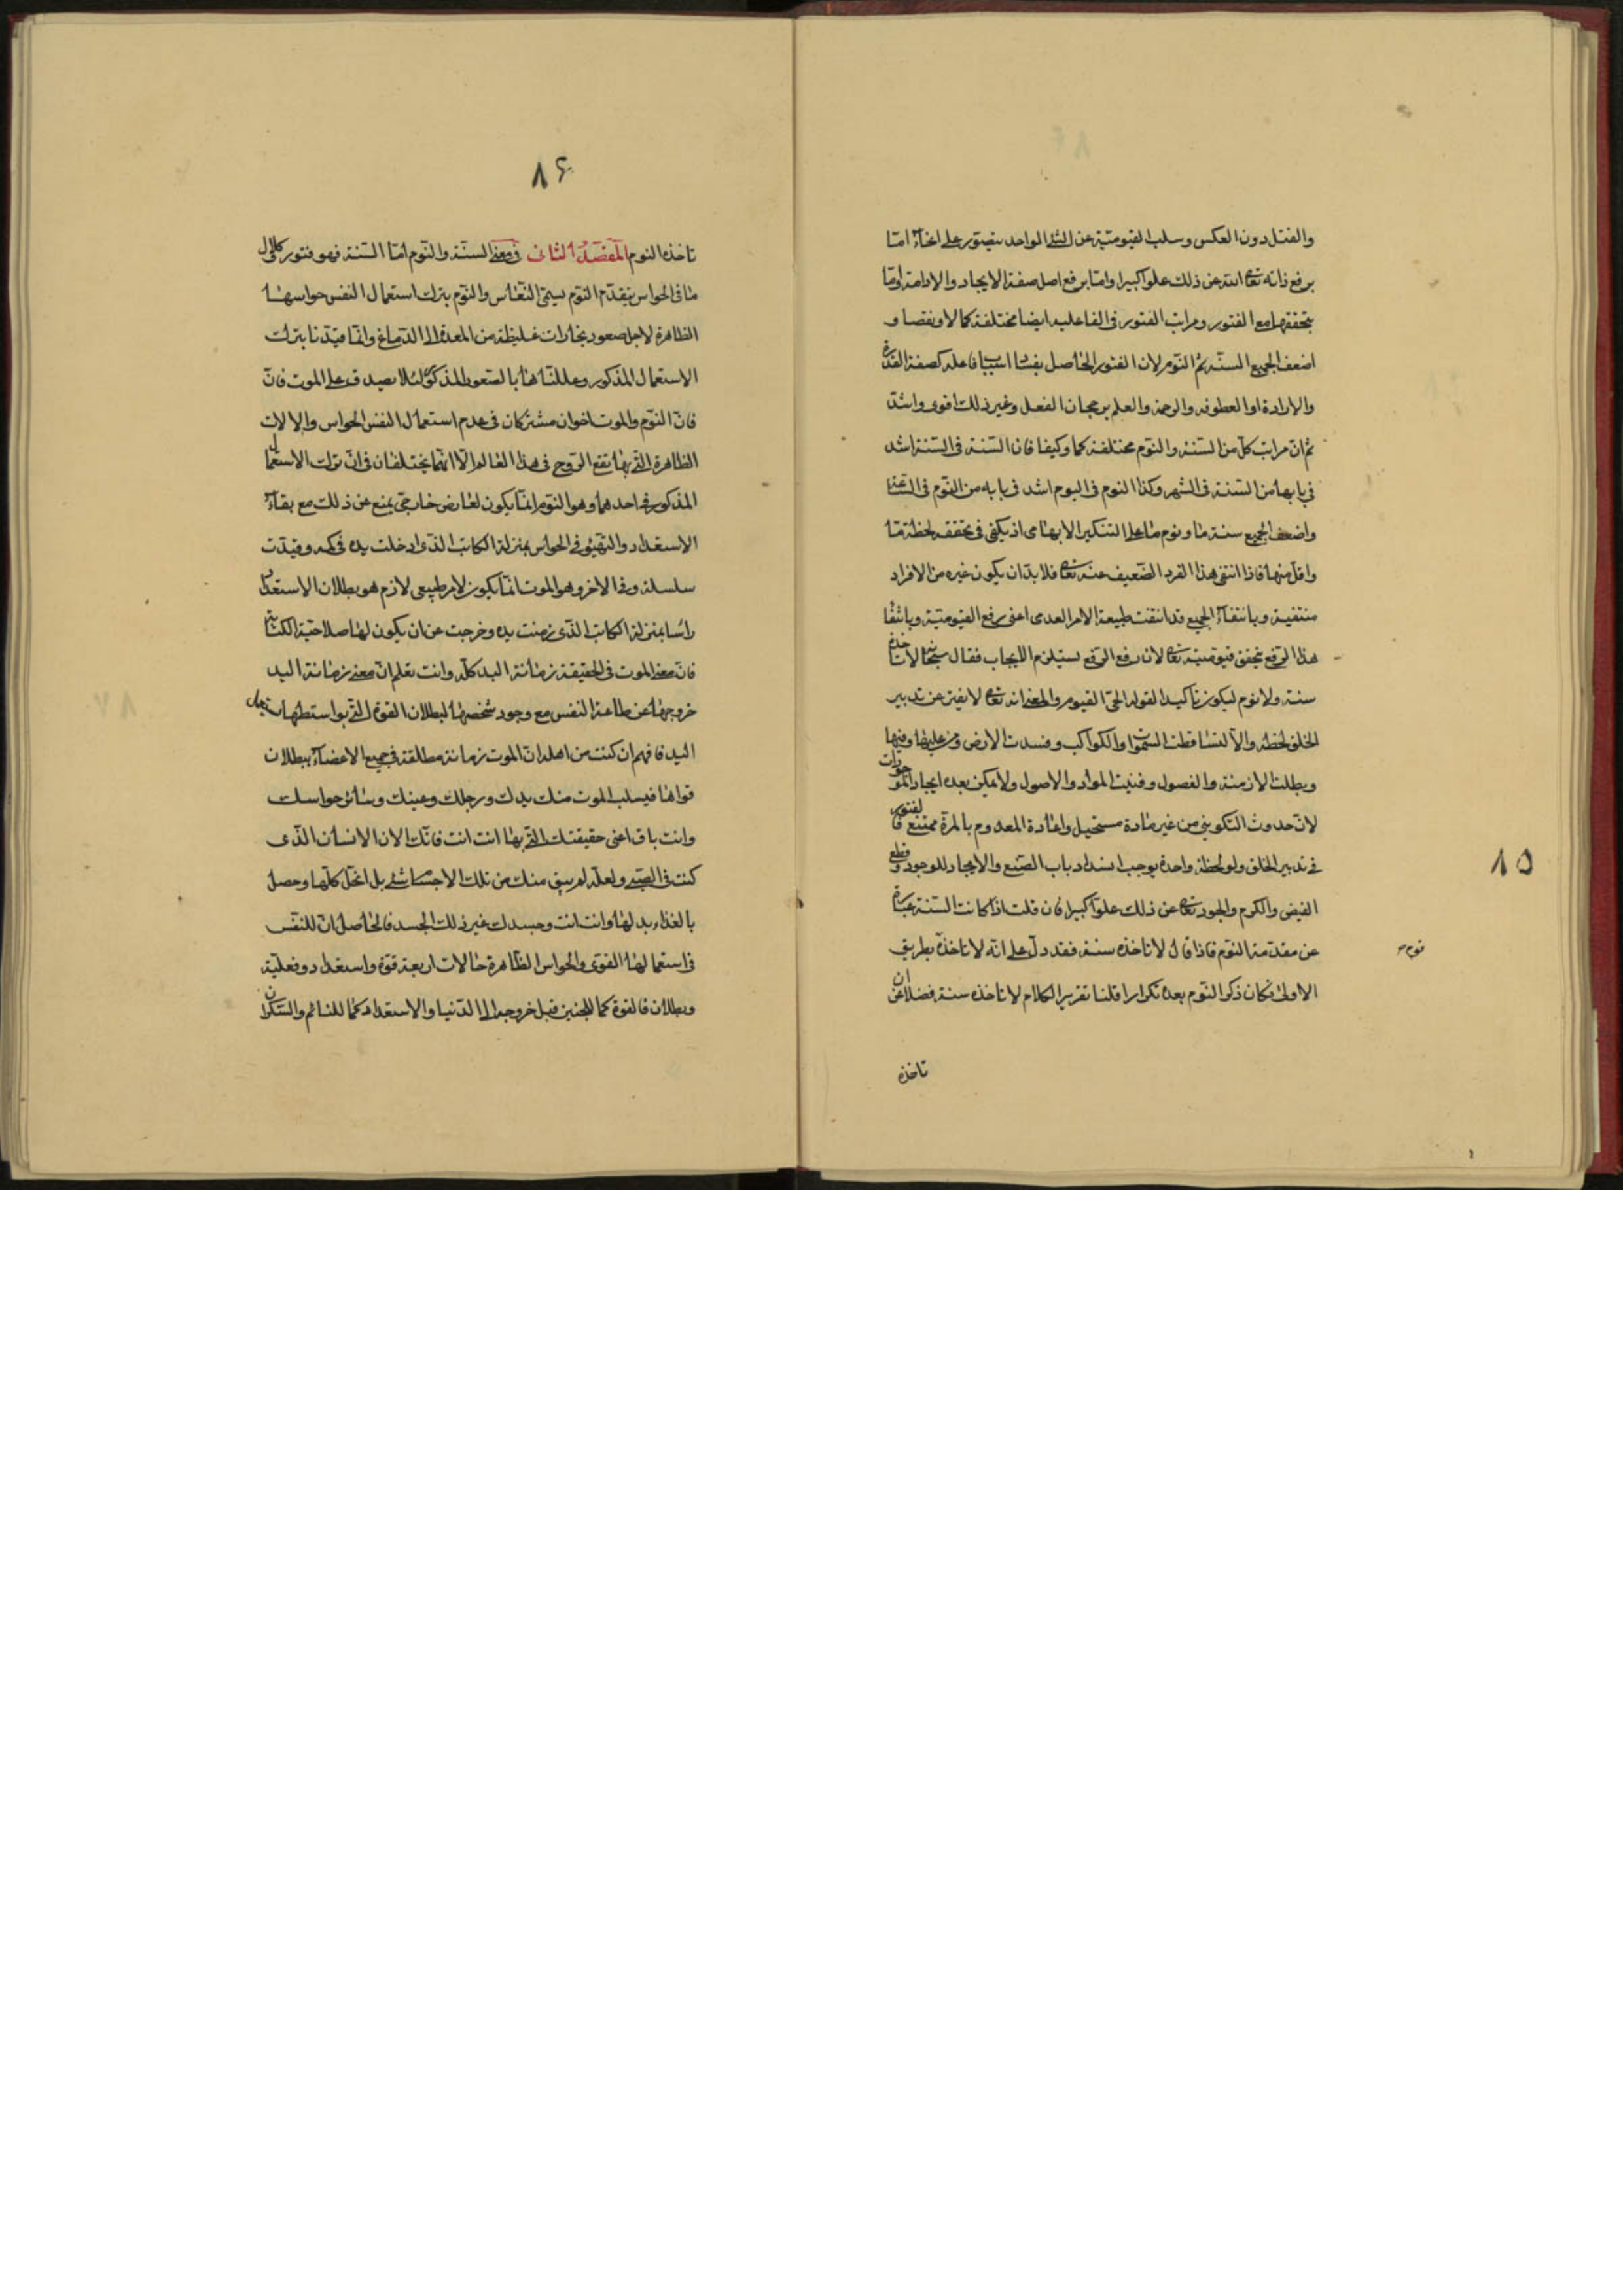 والفتل دون العكس وسلب القيومية عن الشئ الواحد يتصور على انحاء اما
برفع ذاته تعا الله عن ذلك علوا كبيرا واما برفع اصل صفة الايجاد والادامة واما
بتحققها مع الفتور ومراتب الفتور فى الفاعلية ايضا مختلفة كمالا ونقصا و
اضعف الجميع السنة ثم النوم لان الفتور الحاصل اسباب فاعلة كصفة القدرة
والارادة او العطوفة والرحمة والعلم برجحان الفعل وغير ذلك اقوى واشد
ثم ان مراتب كل من السنة والنوم مختلفة كما وكيفا فان السنة فى السنة اشد
فى بابها من السنة فى الشهر وكذا النوم فى اليوم اشد فى بابه من النوم فى الساعة
واضعف الجميع سنة ما ونوم ما على التنكير الابهامى اذ يكفى فى تحققه لحظة ما
واقل منها فاذا انتفى هذا الفرد الضعيف عنه تعا فلا بد ان يكون غيره من الافراد
منتفية وبانتفاء الجميع قد انتفت طبيعة الامر العدمى اعنى رفع القيومية وبانتفا
هذا الرفع تحقق قيوميته تعا لان رفع الرفع يستلزم الايجاب فقال سبحانه لا تاخذه
سنة ولا نوم ليكون تاكيدا لقوله الحى القيوم والمعنى انه تعا لا يفتر عن تدبير
الخلق لحظة والا لتساقطت السموات والكواكب وفسدت الارض ومن عليها وفيها
وبطلت الازمنة والفصول وفنيت المواد والاصول ولا يمكن بعده ايجاد الموجودات
لان حدوث التكوينى من غير مادة مستحيل واعادة المعدوم بالمرة ممتنع فالفتور
فى تدبير الخلق ولو لحظة واحدة يوجب انسداد باب الصنع والايجاد للوجود وقطع
الفيض والكرم والجود تعا عن ذلك علوا كبيرا فان قلت اذا كانت السنة عبارة
عن مقدمة النوم فاذا قال لا تاخذه سنة فقد دل على انه لا تاخذه بطريق
نوم
الاولى فكان ذكر النوم بعده تكرارا قلنا تقرير الكلام لا تاخذه سنة فضلا عن ان
تاخذه
٨٥
٨٦
تاخذه النوم المفصد الثانى فى معنى السنة والنوم اما السنة فهو فتور وكلال
ما فى الحواس يتقدم النوم يسمى النعاس والنوم بترك استعمال النفس حواسها
الظاهرة لاجل صعود بخارات غليظة من المعدة الى الدماغ وانما قيدنا بترك
الاستعمال المذكور وعللناها بالصعود المذكور لئلا يصدق على الموت فان
فان النوم والموت اخوان مشتركان فى عدم استعمال النفس الحواس والالات
الظاهرة التى بها يقع الروح فى هذا العالم الا انهما يختلفان فى ان ترك الاستعمال
المذكور فى احدهما وهو النوم انما يكون لعارض خارجى يمنع عن ذلك مع بقاء
الاستعداد والتهيؤ فى الحواس بمنزلة الكاتب الذى ادخلت يده فى كمه وقيدت
سلسلة وفى الاخر وهو الموت انما يكون لامر طبيعى لازم هو بطلان الاستعداد
راسا بمنزلة الكاتب الذى زمنت يده وخرجت عن ان يكون لها صلاحية الكتابة
فان معنى الموت فى الحقيقة زمانة البدن كله وانت تعلم ان معنى زمانة اليد
خروجها عن طاعة النفس مع وجود شخصها لبطلان القوة التى بواسطتها تستعمل
اليد فافهم ان كنت من اهله ان الموت زمانة مطلقة فى جميع الاعضاء ببطلان
قواها فيسلب الموت منك يدك ورجلك وعينك وسائر حواسك
وانت باق اعنى حقيقتك التى بها انت انت فانك الان الانسان الذى
كنت فى الصبى ولعله لم يبق منك من تلك الاجسام شئ بل انحل كلها وحصل
بالغذاء بدلها وانت انت وجسدك غير ذلك الجسد فالحاصل ان للنفس
فى استعمالها القوى والحواس الظاهرة حالات اربعة قوة واستعداد وفعلية
وبطلان فالقوة كما للجنين قبل خروجه الى الدنيا والاستعداد كما للنائم والسكران